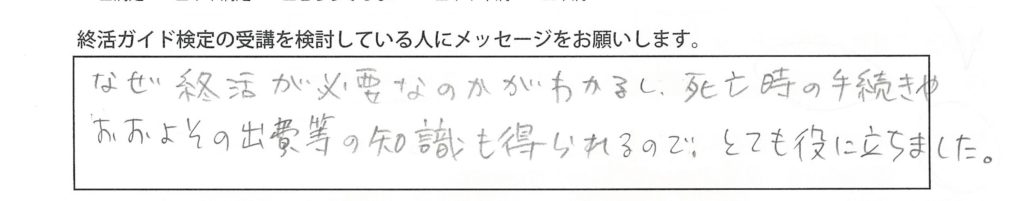 終活ガイド検定の受講を検討している人にメッセージをお願いします。
なぜ終活が必要なのかがわかるし、死亡時の手続きや
おおよその出費等の知識も得られるので、とても役に立ちました。